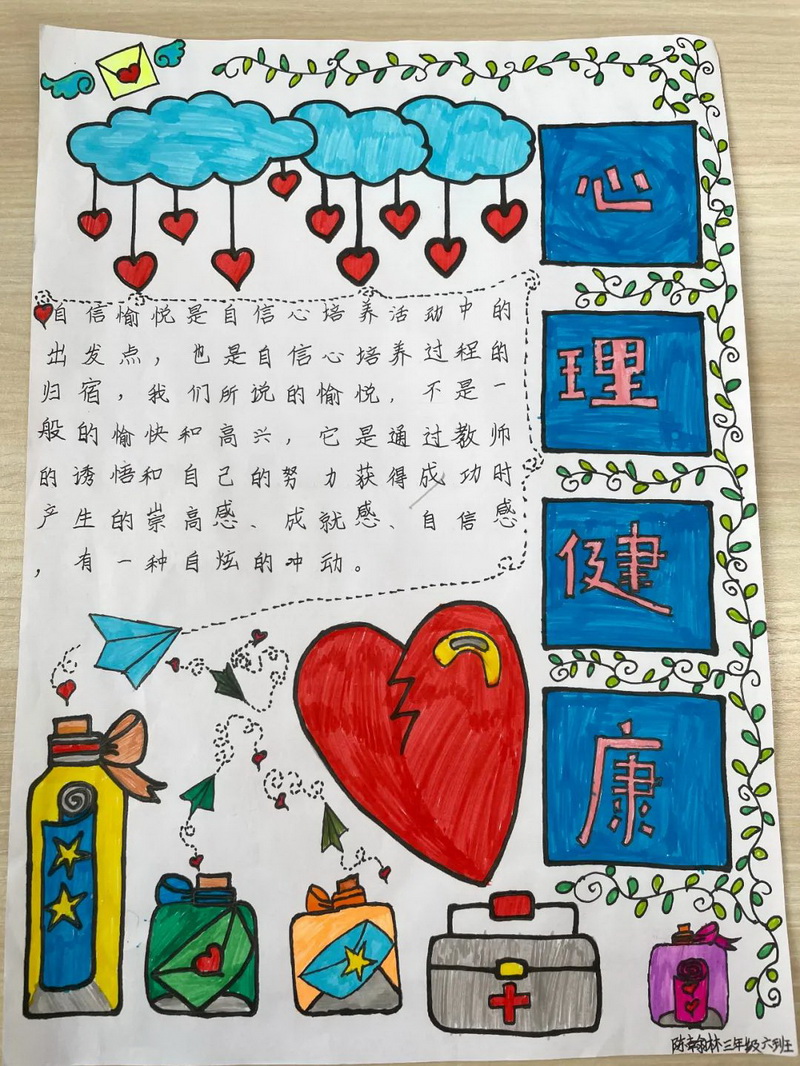 心
理
健
康
自信愉悦是自信心培养活动中的
出发点，也是自信心培养过程的
归宿，我们所说的愉悦，不是一
般的愉快和高兴，它是通过教师
的诱悟和自己的努力获得成功时
产生的崇高感、成就感、自信感
，有一种自炫的冲动。
陈翰林三年级六班王